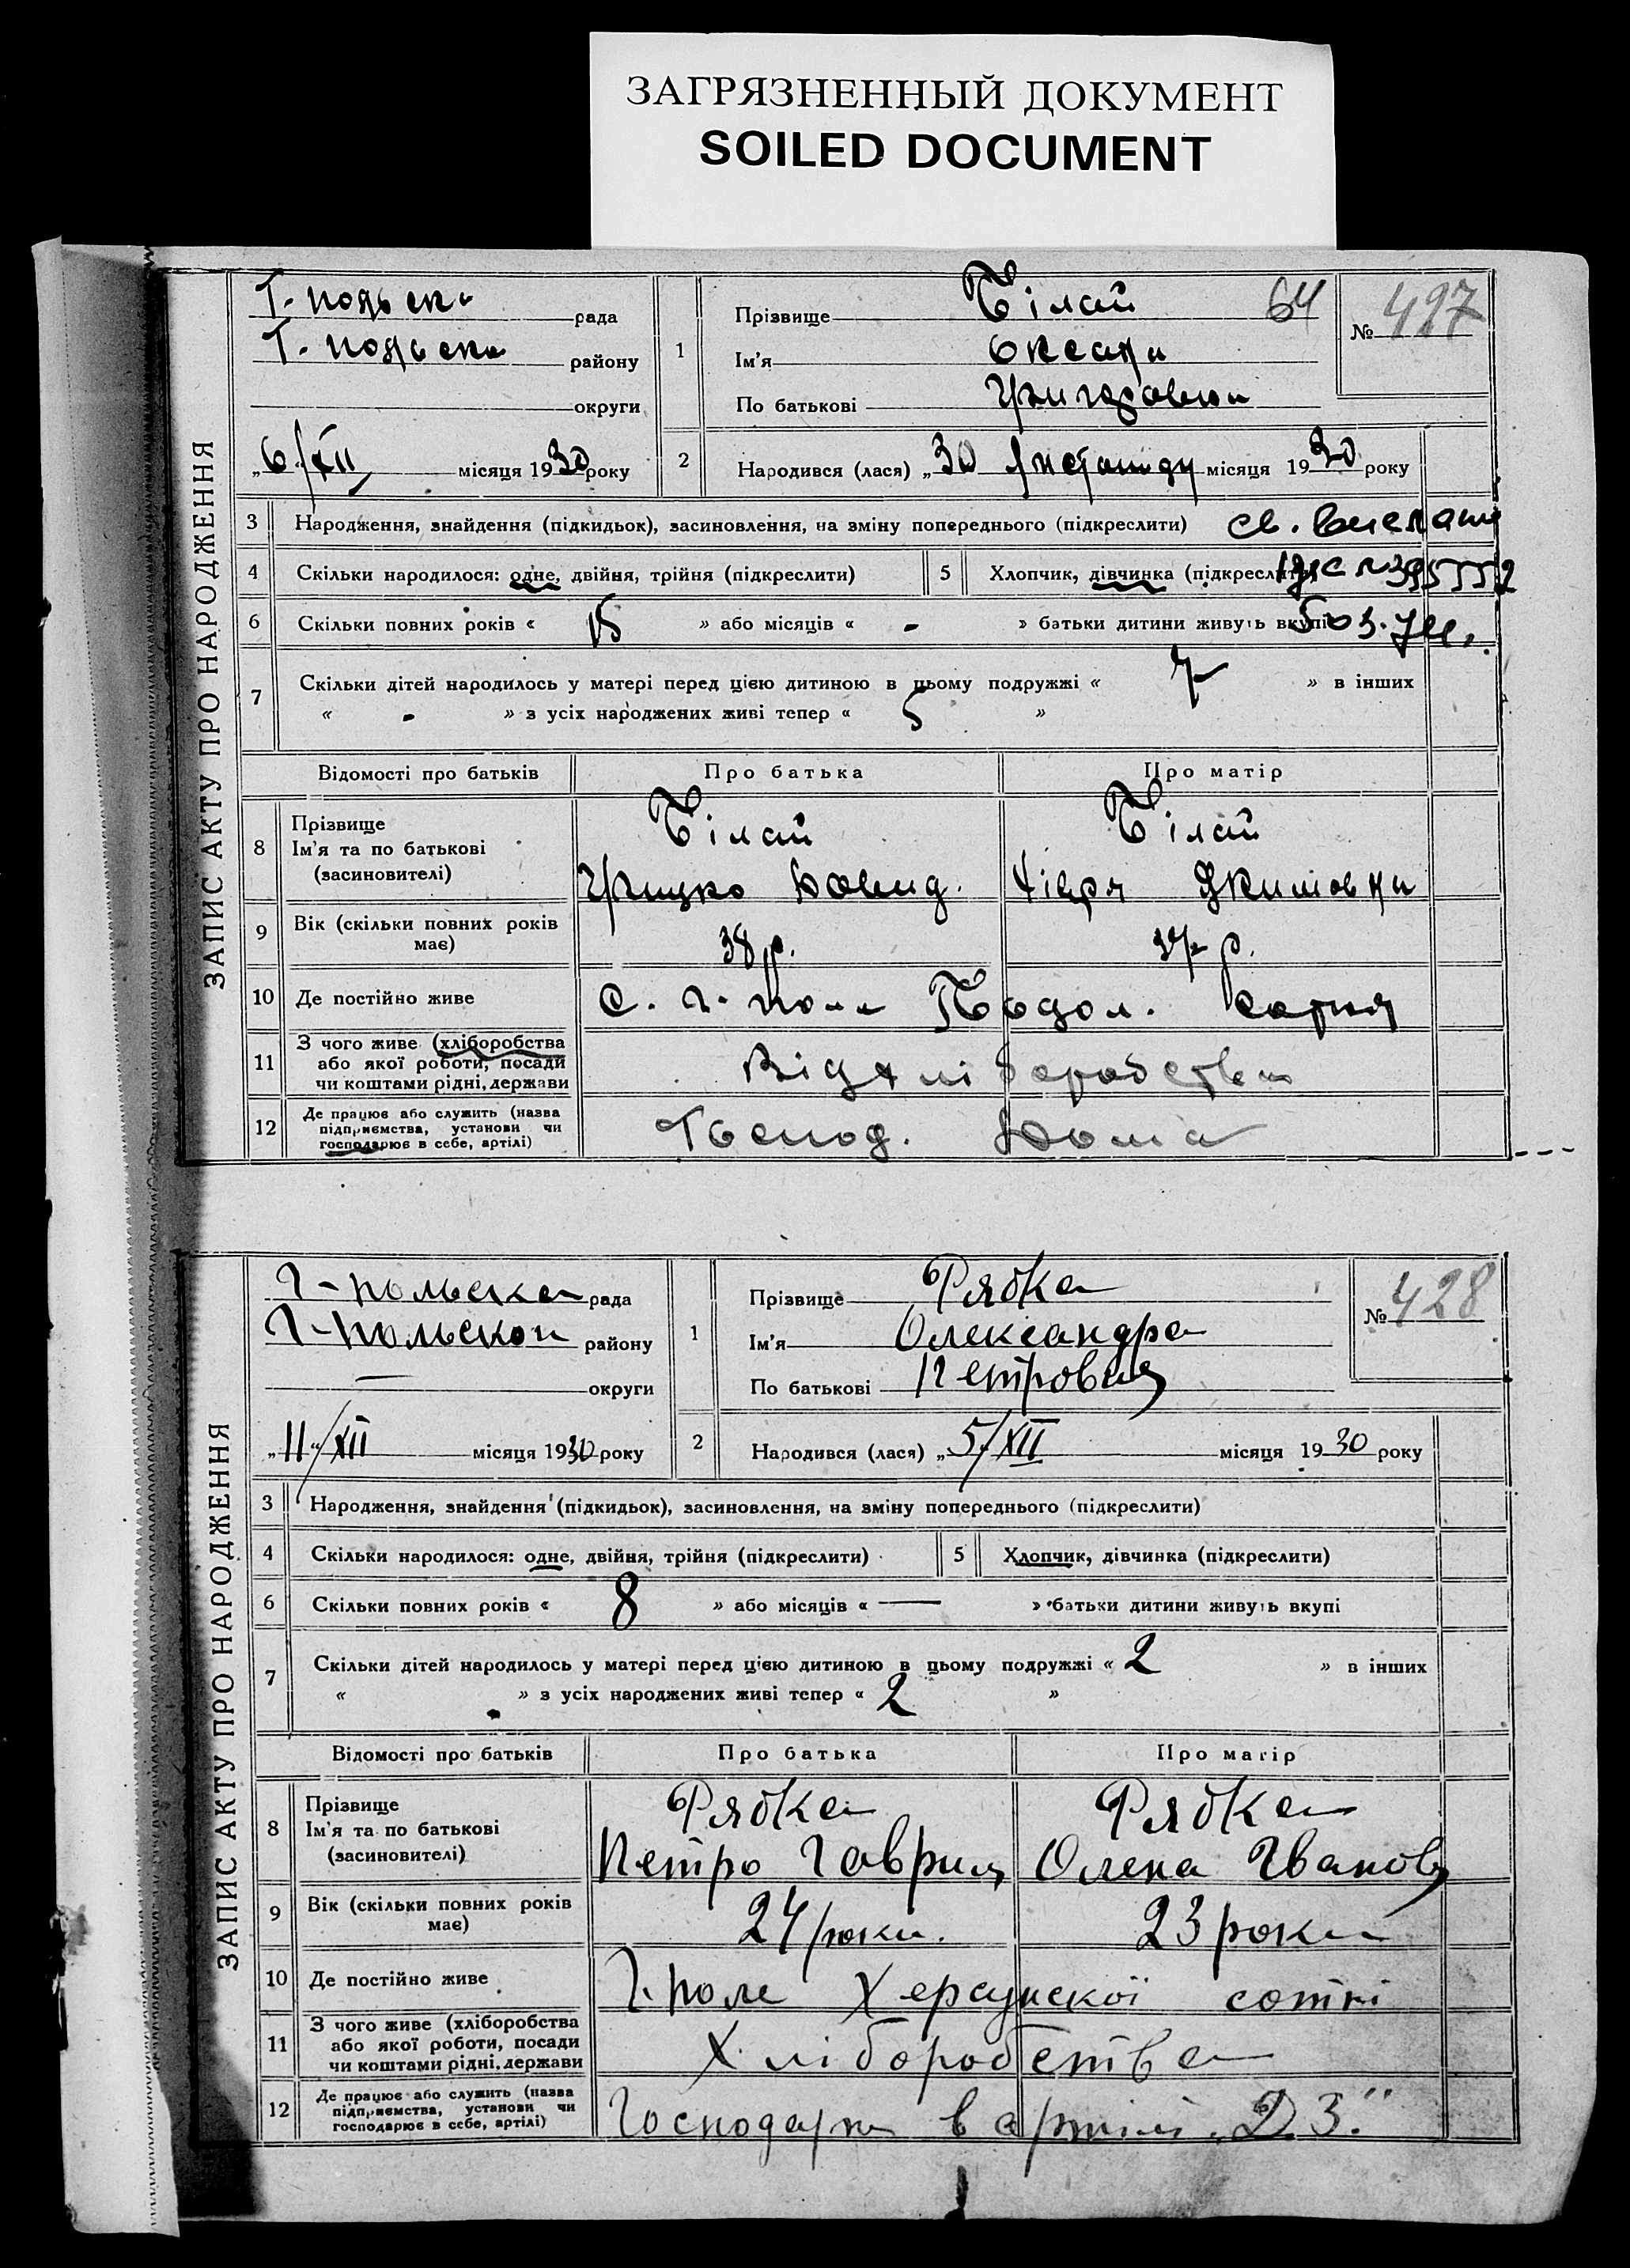 ЗАГРЯЗНЕННЫЙ ДОКУМЕНТ
SOILED DOCUMENT
ЗАПИС АКТУ ПРО НАРОДЖЕННЯ
рада
району
округи
„6“/XII місяця 1930 року
1
Прізвище Білай 64
Ім'я Оксана
По батькові
№ 427
2 Народився (лася) „30 місяця 1930 року
3 Народження, знайдення (підкидьок), засиновлення, на зміну попереднього (підкреслити) св.
4 Скільки народилося: одне, двійня, трійня (підкреслити)
5 Хлопчик, дівчинка (підкреслити)
6 Скільки повних років « 15 » або місяців « - » батьки дитини живуть вкупі
7 Скільки дітей народилось у матері перед цією дитиною в цьому подружжі « 7 » в інших
« - » з усіх народжених живі тепер « 5 »
Відомості про батьків Про батька Про матір
8 Прізвище
Ім'я та по батькові
(засиновителі)
Білай Білай
Грицко
9 Вік (скільки повних років має)
38 р. р.
10 Де постійно живе
с. Г. поле Подол. сотня
11 З чого живе (хліборобства
або якої роботи, посади
чи коштами рідні, держави
Від хліборобства
12 Де працює або служить (назва
підприємства, установи чи
господарює в себе, артілі)
Господ. Дома
ЗАПИС АКТУ ПРО НАРОДЖЕННЯ
Г-польска рада
Г-польской району
— округи
„11“/XII місяця 1930 року
1
Прізвище Рябка
Ім'я Олександра
По батькові
№ 428
2 Народився (лася) „5“/XII місяця 1930 року
3 Народження, знайдення (підкидьок), засиновлення, на зміну попереднього (підкреслити)
4 Скільки народилося: одне, двійня, трійня (підкреслити)
5 Хлопчик, дівчинка (підкреслити)
6 Скільки повних років « 8 » або місяців « — » батьки дитини живуть вкупі
7 Скільки дітей народилось у матері перед цією дитиною в цьому подружжі « 2 » в інших
« - » з усіх народжених живі тепер « 2 »
Відомості про батьків Про батька Про матір
8 Прізвище
Ім'я та по батькові
(засиновителі)
Рябка Рябка
Петро Гаврил Олена Іванов
9 Вік (скільки повних років має)
24 роки. 23 роки
10 Де постійно живе
Г. поле Херсунскої сотні
11 З чого живе (хліборобства
або якої роботи, посади
чи коштами рідні, держави
Хліборобства
12 Де працює або служить (назва
підприємства, установи чи
господарює в себе, артілі)
в артілі „Д З.“